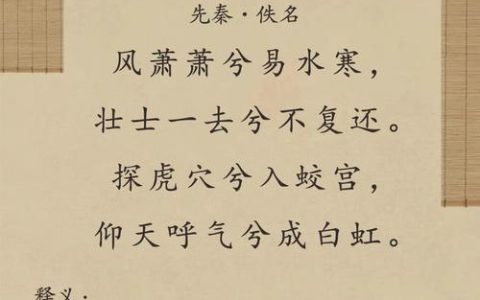 先秦·佚名
风萧萧兮易水寒，
壮士一去兮不复还。
探虎穴兮入蛟宫，
仰天呼气兮成白虹。
释义：